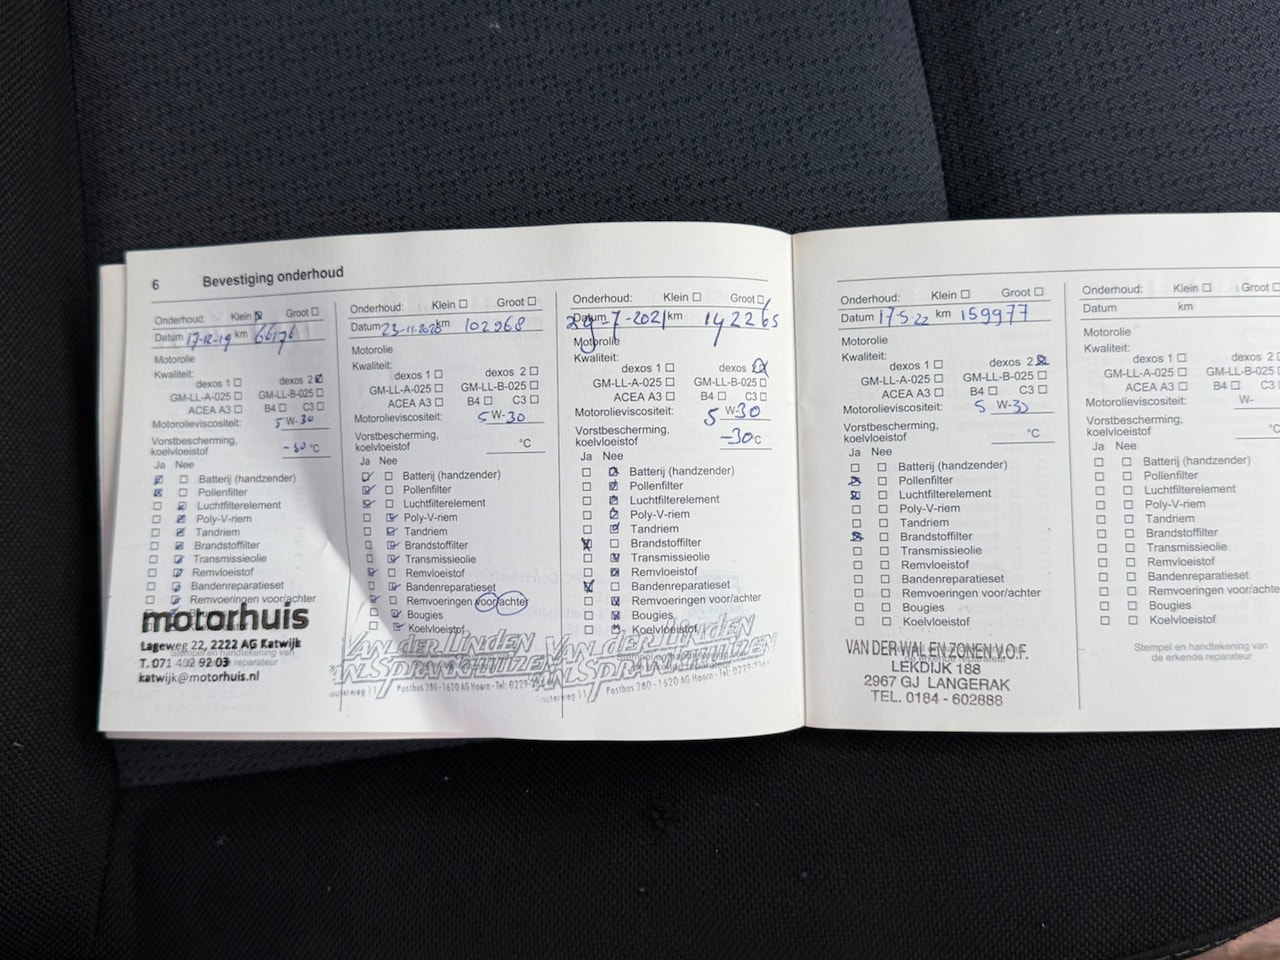 6 Bevestiging onderhoud
Onderhoud: Klein Groot
Datum 17-12-19 km 66176
Motorolie
Kwaliteit:
dexos 1 dexos 2
GM-LL-A-025 GM-LL-B-025
ACEA A3 B4 C3
Motorolieviscositeit: 5 W-30
Vorstbescherming,
koelvloeistof -30 °C
Ja Nee
Batterij (handzender)
Pollenfilter
Luchtfilterelement
Poly-V-riem
Tandriem
Brandstoffilter
Transmissieolie
Remvloeistof
Bandenreparatieset
Remvoeringen voor/achter
motorhuis
Lageweg 22, 2222 AG Katwijk
T. 071 402 92 03
katwijk@motorhuis.nl
Onderhoud: Klein Groot
Datum 23-11-2020 km 102968
Motorolie
Kwaliteit:
dexos 1 dexos 2
GM-LL-A-025 GM-LL-B-025
ACEA A3 B4 C3
Motorolieviscositeit: 5 W-30
Vorstbescherming,
koelvloeistof °C
Ja Nee
Batterij (handzender)
Pollenfilter
Luchtfilterelement
Poly-V-riem
Tandriem
Brandstoffilter
Transmissieolie
Remvloeistof
Bandenreparatieset
Remvoeringen voor/achter
Bougies
Koelvloeistof
Van der Linden
Postbus 280 - 1620 AG Hoorn - Tel: 0229
Onderhoud: Klein Groot
Datum 29-7-2021 km 142265
Motorolie
Kwaliteit:
dexos 1 dexos
GM-LL-A-025 GM-LL-B-025
ACEA A3 B4 C3
Motorolieviscositeit: 5 W-30
Vorstbescherming,
koelvloeistof -30 C
Ja Nee
Batterij (handzender)
Pollenfilter
Luchtfilterelement
Poly-V-riem
Tandriem
Brandstoffilter
Transmissieolie
Remvloeistof
Bandenreparatieset
Remvoeringen voor/achter
Bougies
Koelvloeistof
van der Linden
Postbus 280 - 1620 AG Hoorn - Tel: 0229
Onderhoud: Klein Groot
Datum 17-5-22 km 159977
Motorolie
Kwaliteit:
dexos 1 dexos 2
GM-LL-A-025 GM-LL-B-025
ACEA A3 B4 C3
Motorolieviscositeit: 5 W-30
Vorstbescherming,
koelvloeistof °C
Ja Nee
Batterij (handzender)
Pollenfilter
Luchtfilterelement
Poly-V-riem
Tandriem
Brandstoffilter
Transmissieolie
Remvloeistof
Bandenreparatieset
Remvoeringen voor/achter
Bougies
Koelvloeistof
VAN DER WAL EN ZONEN V.O.F.
LEKDIJK 188
2967 GJ LANGERAK
TEL. 0184 - 602888
Onderhoud: Klein Groot
Datum km
Motorolie
Kwaliteit:
dexos 1 dexos 2
GM-LL-A-025 GM-LL-B-025
ACEA A3 B4 C3
Motorolieviscositeit: W-
Vorstbescherming,
koelvloeistof °C
Ja Nee
Batterij (handzender)
Pollenfilter
Luchtfilterelement
Poly-V-riem
Tandriem
Brandstoffilter
Transmissieolie
Remvloeistof
Bandenreparatieset
Remvoeringen voor/achter
Bougies
Koelvloeistof
Stempel en handtekening van
de erkende reparateur